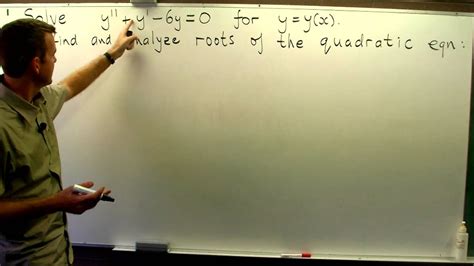 Solve y'' + y - 6y = 0 for y = y(x).
find and analyze roots of the quadratic eqn: